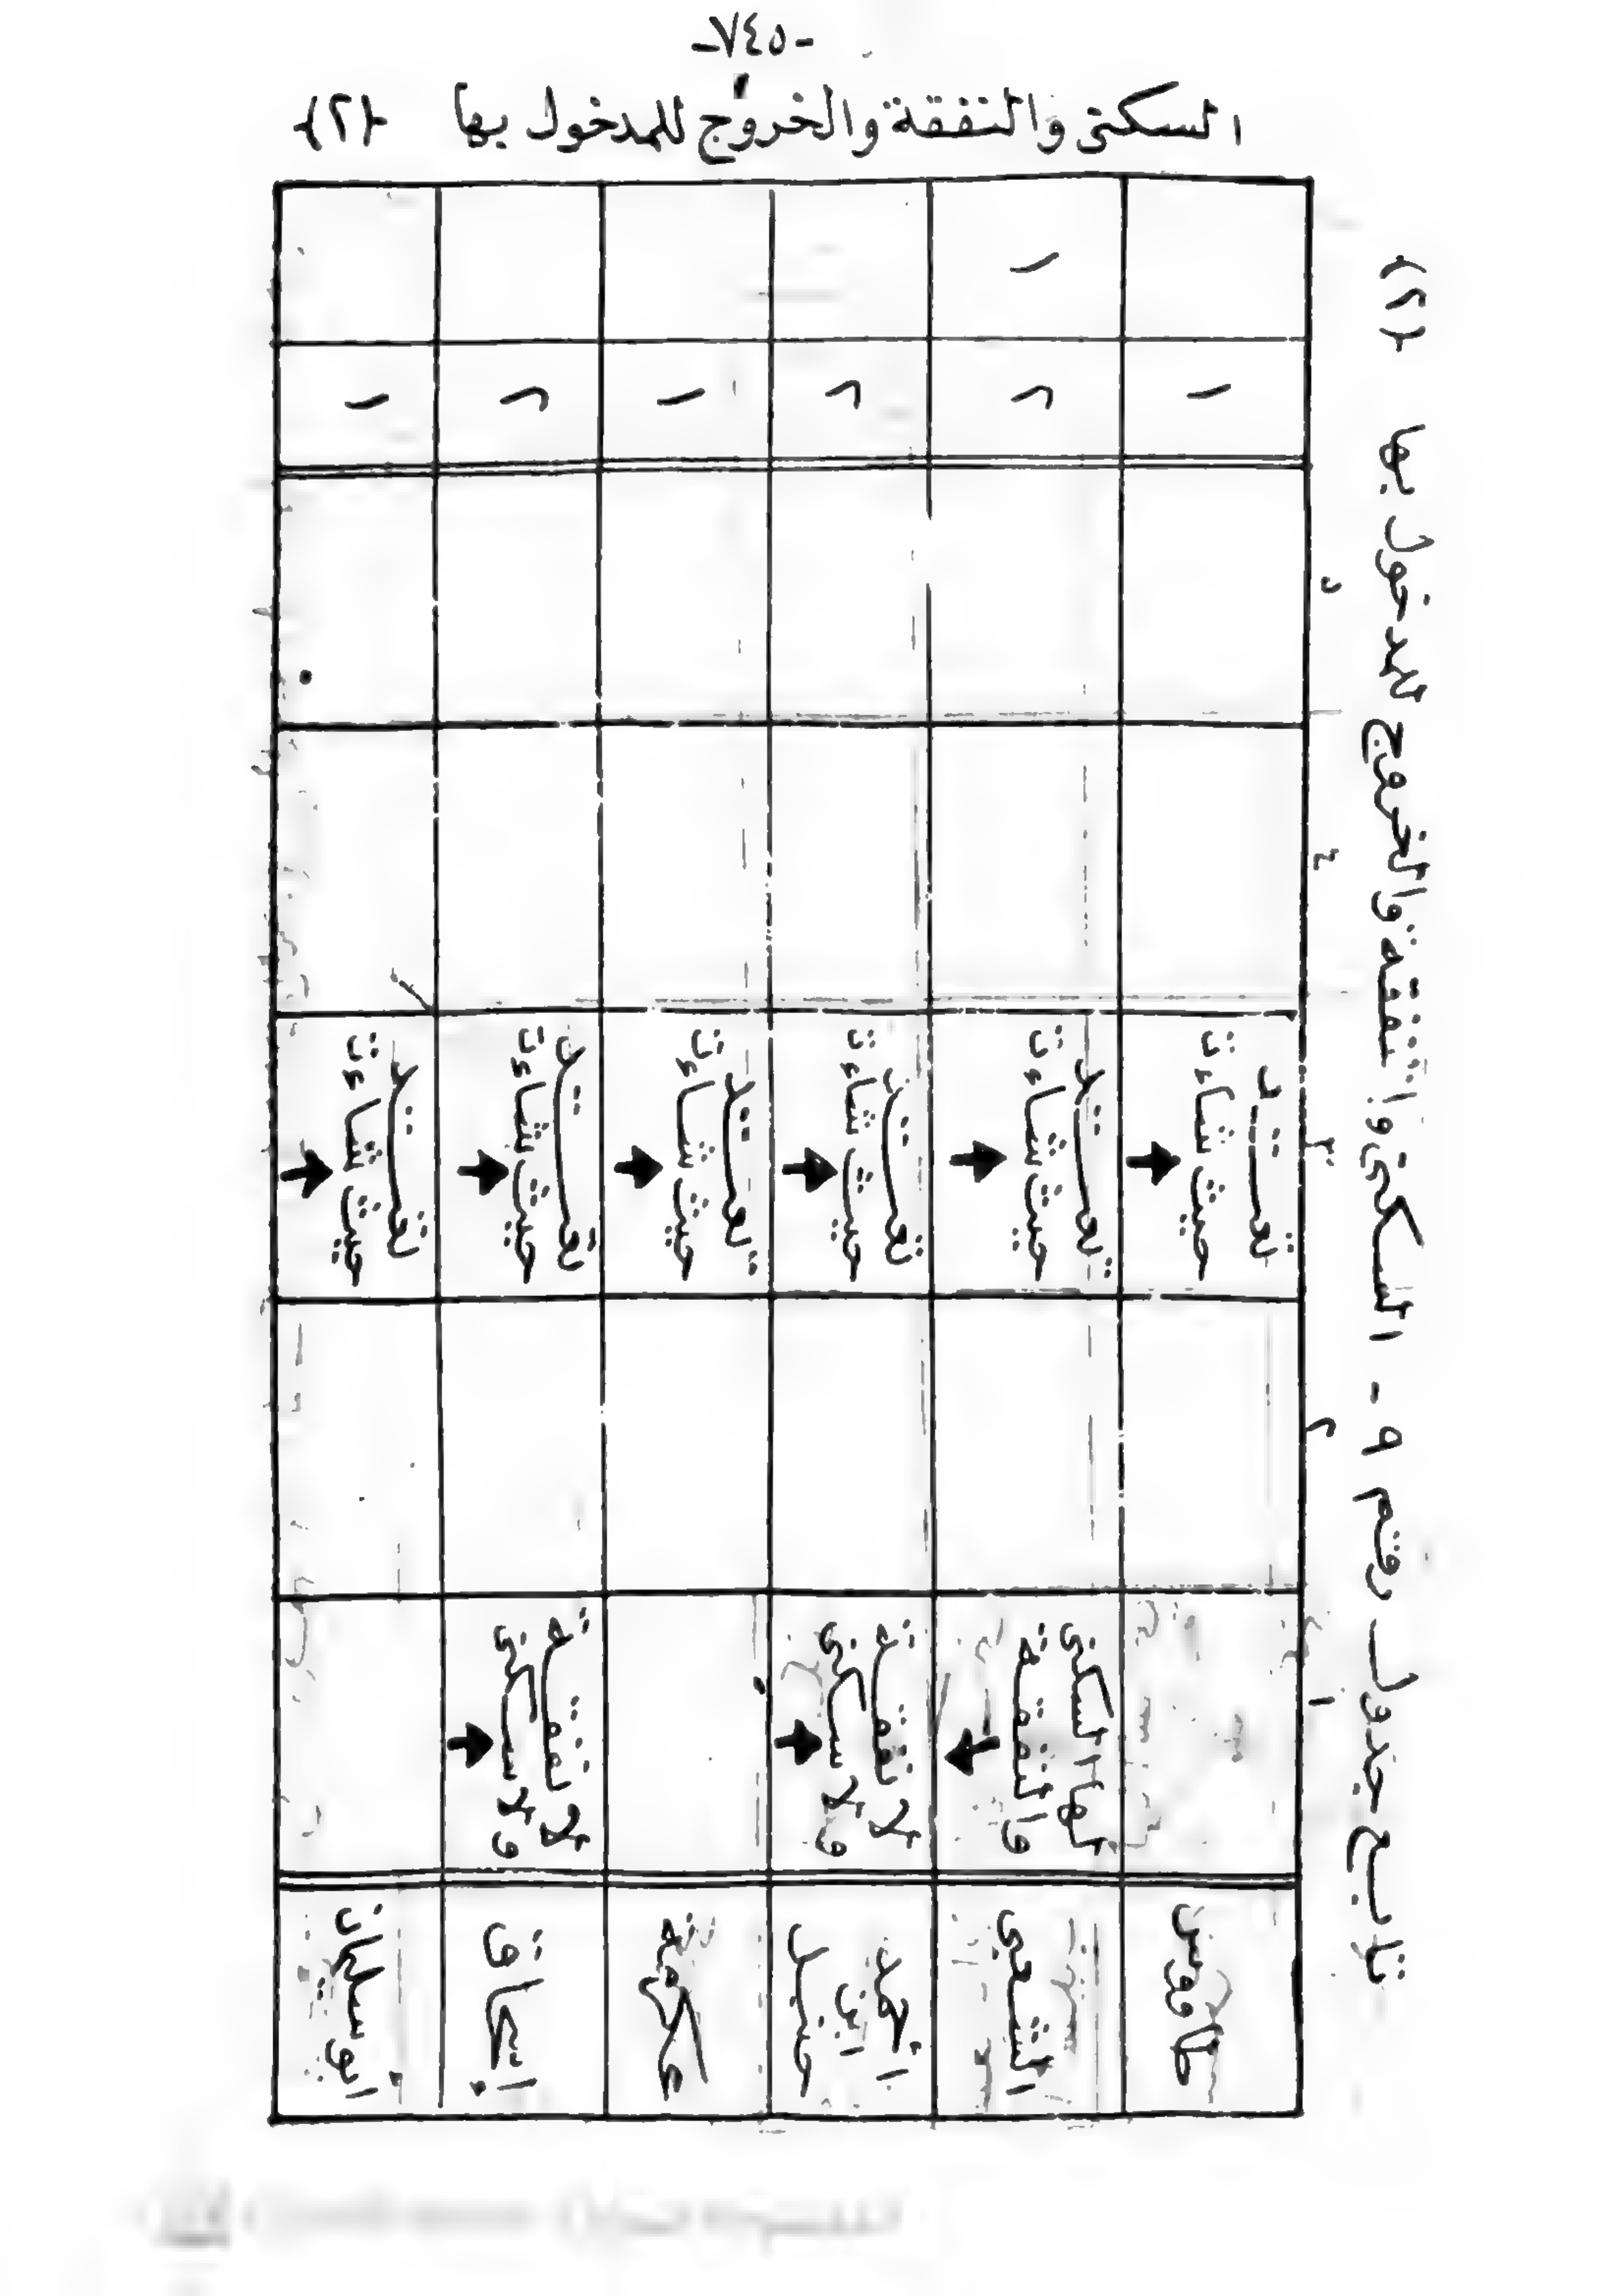 -٧٤٥-
السكنى والنفقة والخروج للمدخول بها {٢}
تابع جدول رقم ٩ - السكنى والنفقة والخروج للمدخول بها {٢}
١ ٢ ٣ ٤ ٥
طاووس
تعتد
حيث شاءت
١
الشعبى
لها السكنى
والنفقة
تعتد
حيث شاءت
٢
١
أحمد
ابن
حنبل
لا نفقة
ولا سكنى
تعتد
حيث شاءت
٢
عكرمة
تعتد
حيث شاءت
١
إسحاق
لا نفقة
ولا سكنى
تعتد
حيث شاءت
٢
ابو سليمان
تعتد
حيث شاءت
١